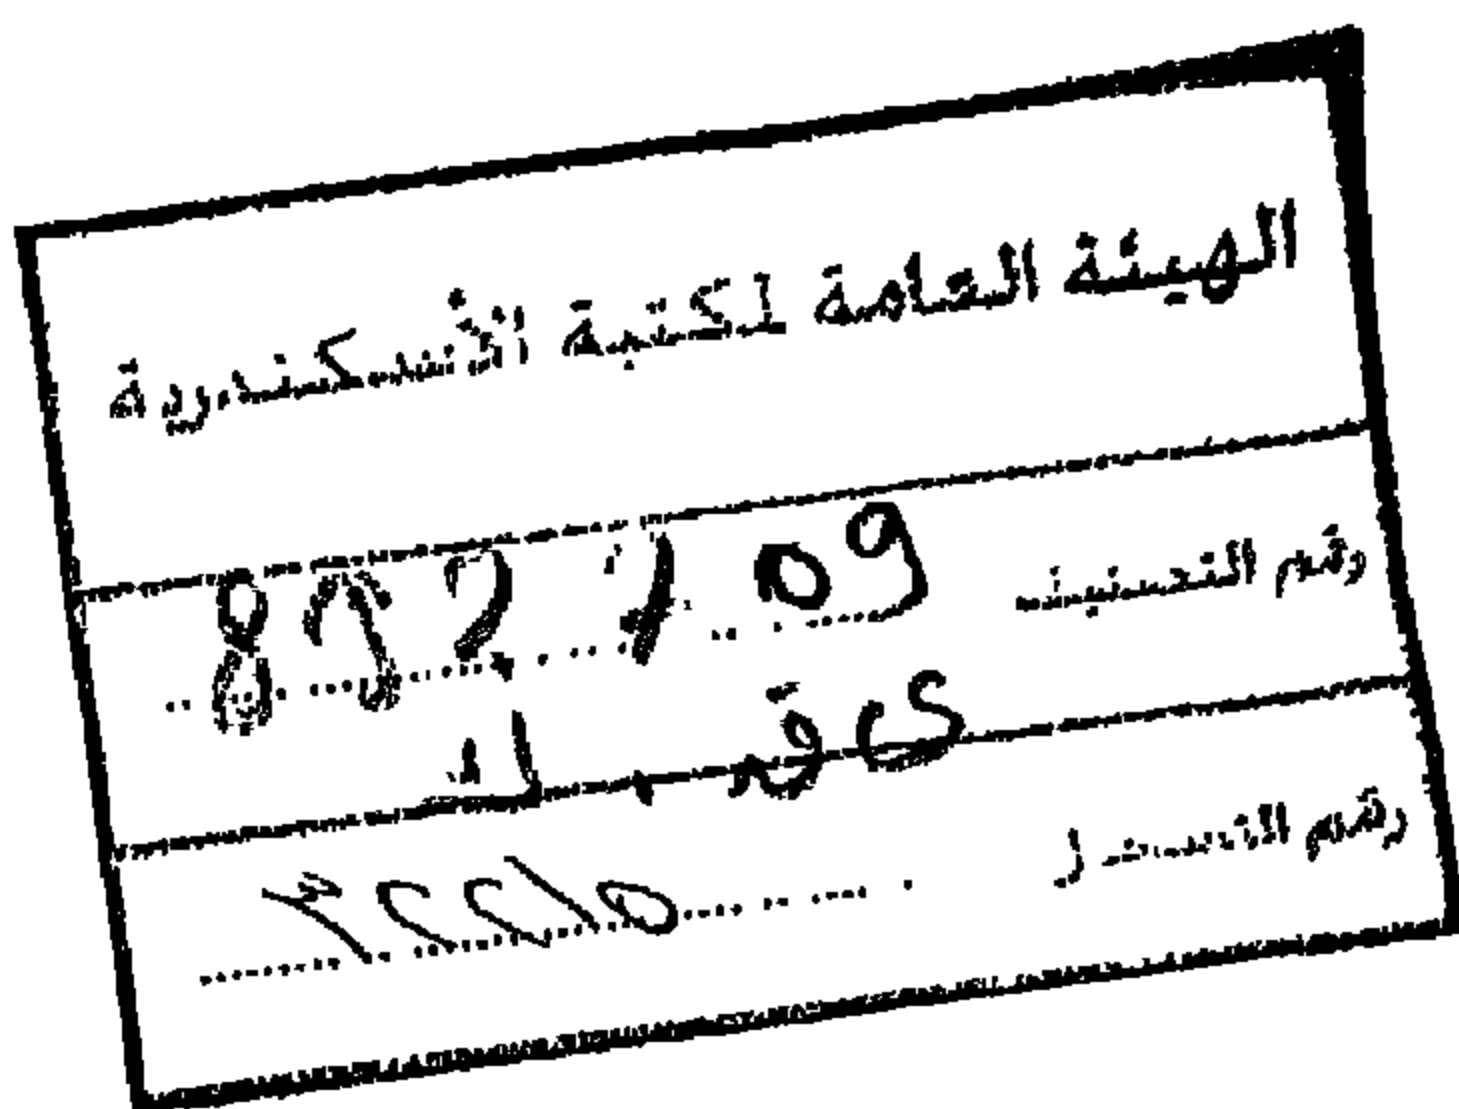 الهيئة العامة لمكتبة الأسكندرية
رقم التصنيف 892.709
ى ق . ك
رقم التسجيل ٣٢٢١٥